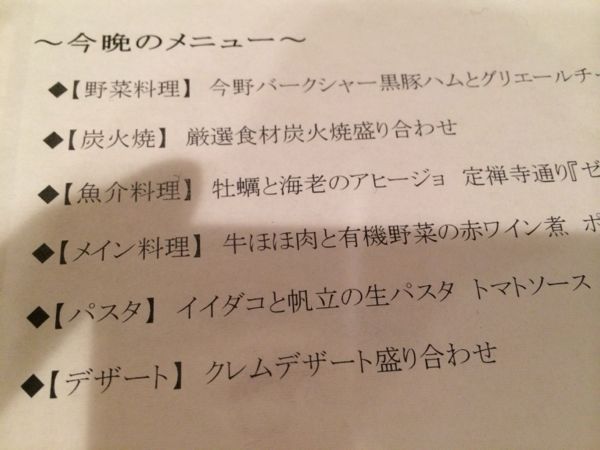 ～今晩のメニュー～
◆【野菜料理】 今野バークシャー黒豚ハムとグリエールチー
◆【炭火焼】 厳選食材炭火焼盛り合わせ
◆【魚介料理】 牡蠣と海老のアヒージョ 定禅寺通り『ゼ
◆【メイン料理】 牛ほほ肉と有機野菜の赤ワイン煮 ポ
◆【パスタ】 イイダコと帆立の生パスタ トマトソース
◆【デザート】 クレムデザート盛り合わせ